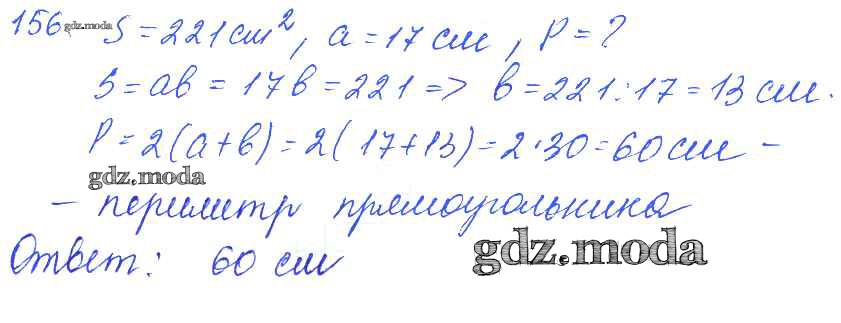 156 gdz.moda S = 221 см², a = 17 см, P = ?
S = ab = 17b = 221 => b = 221 : 17 = 13 см.
P = 2(a+b) = 2(17+13) = 2·30 = 60 см –
gdz.moda
– периметр прямоугольника
Ответ: 60 см gdz.moda